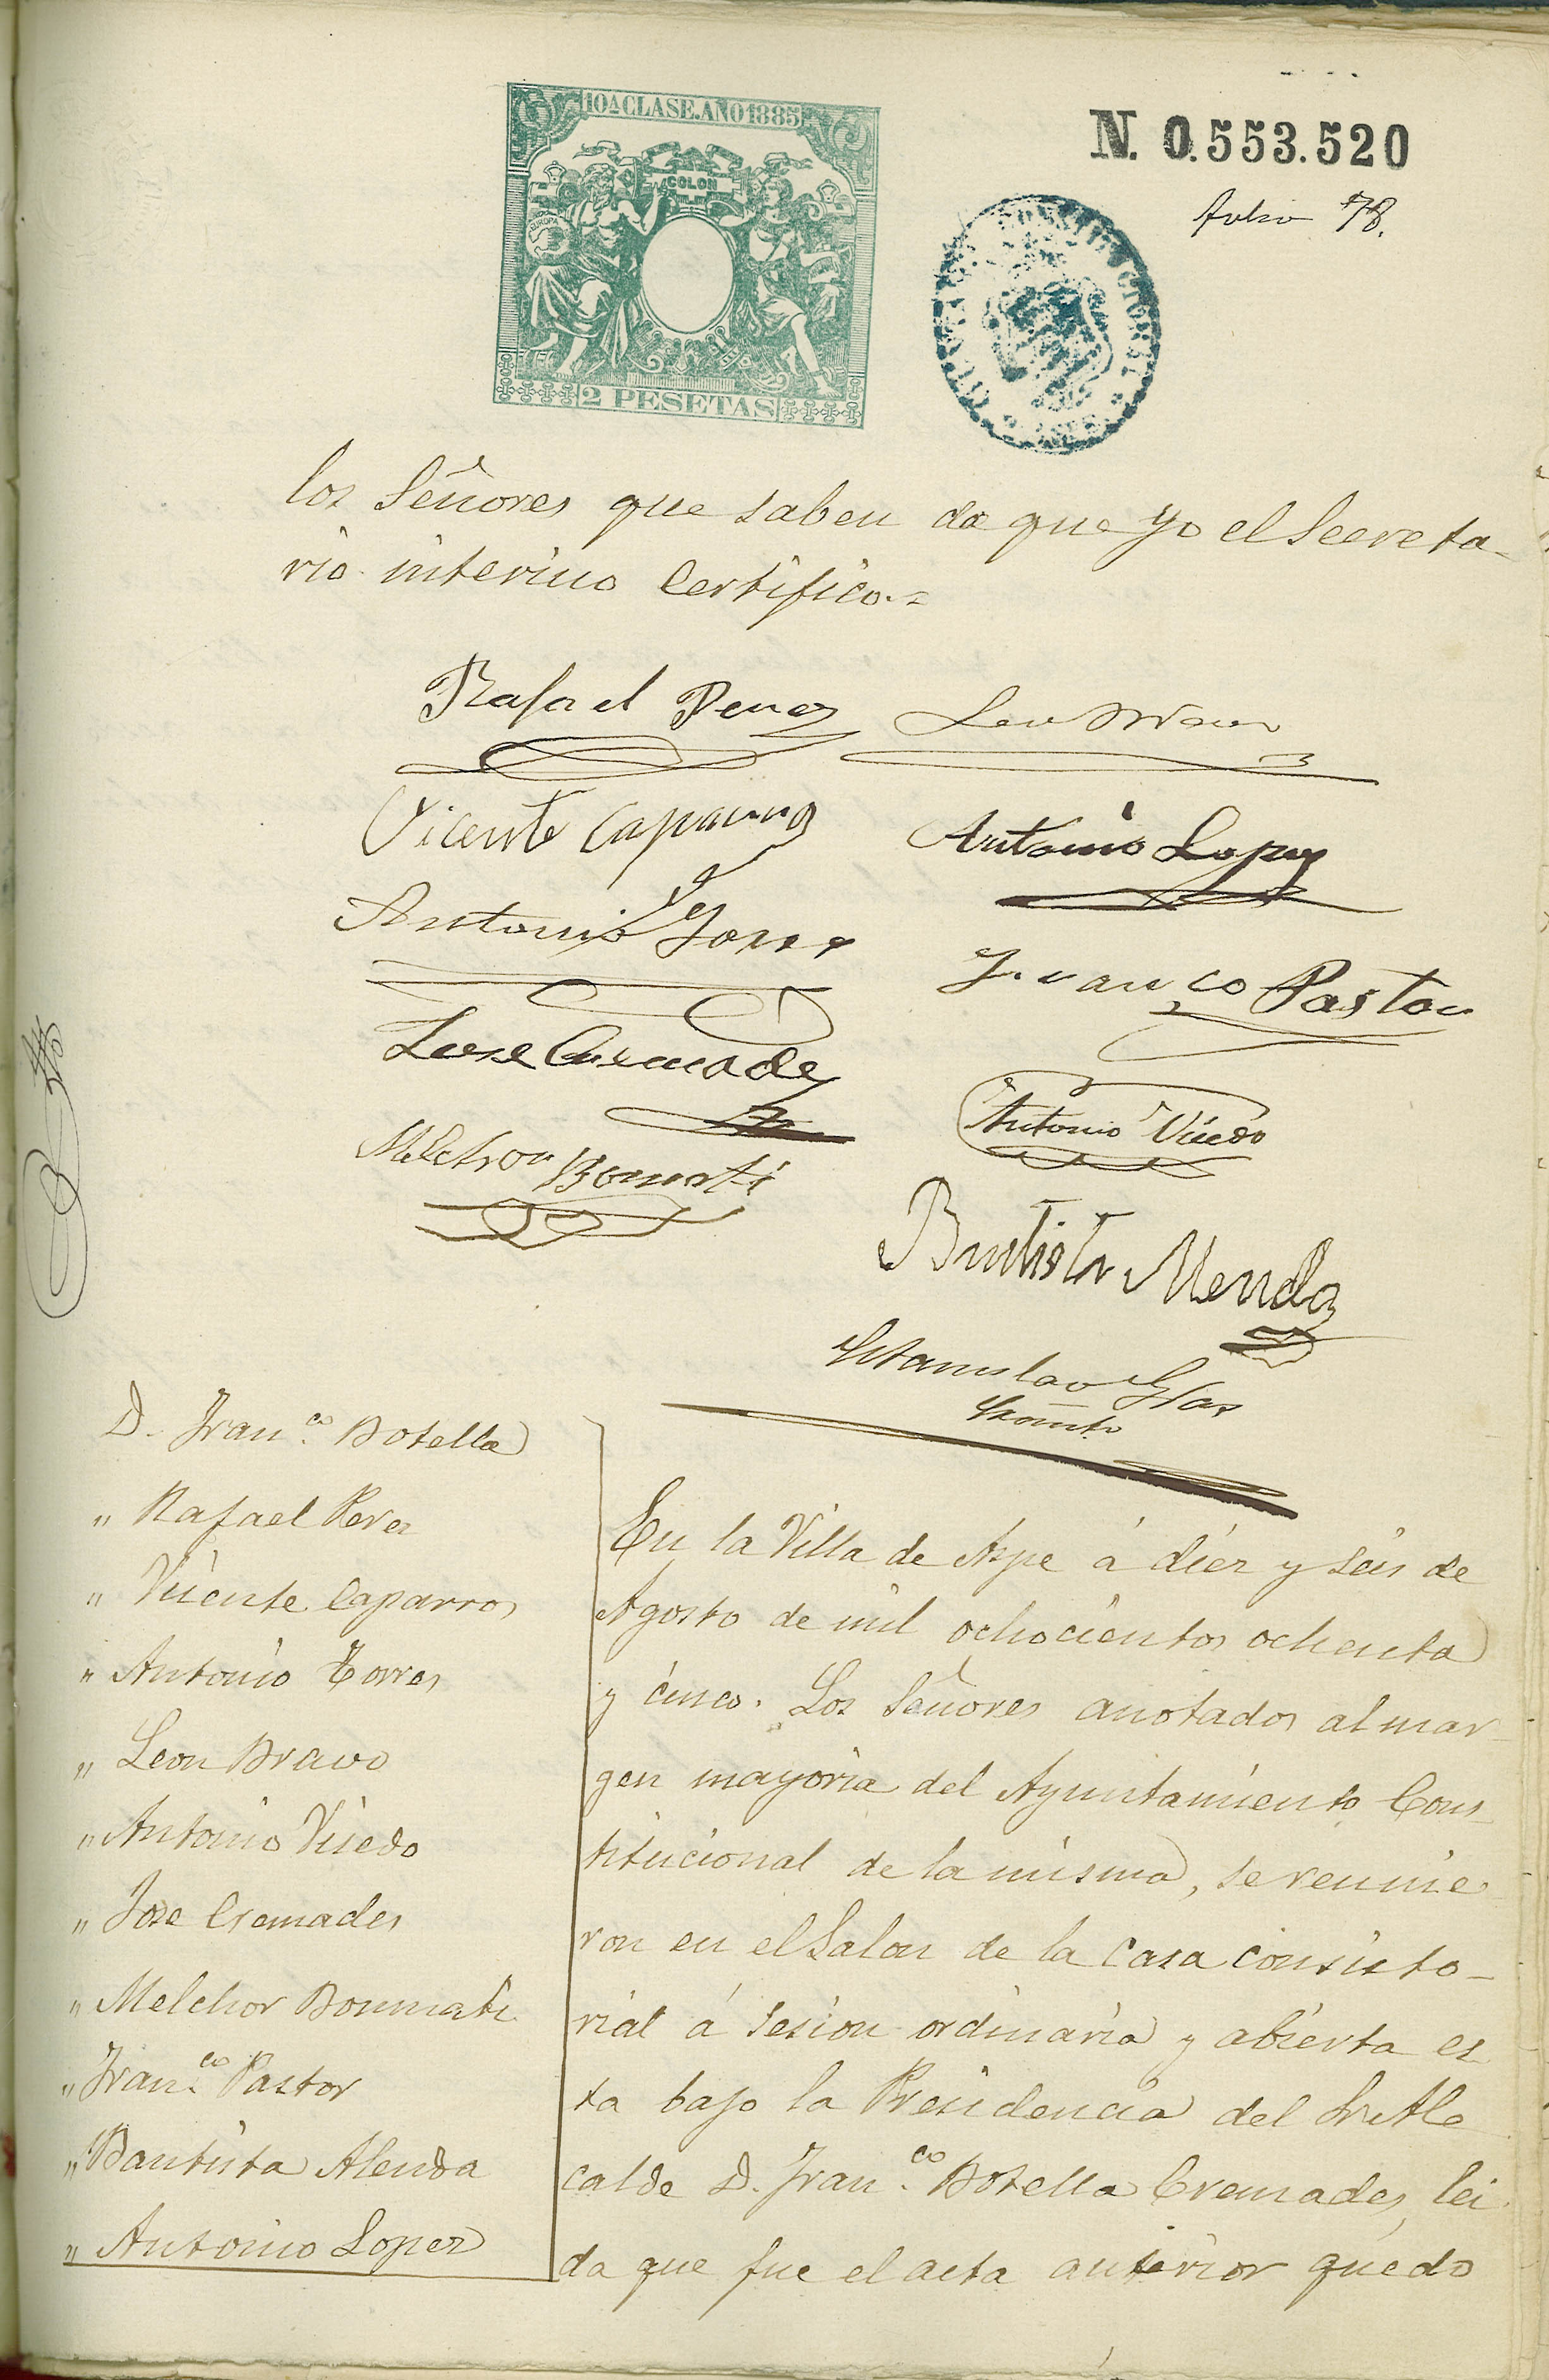 10ª CLASE. AÑO 1885
COLON
EUROPA
2 PESETAS
N. 0.553.520
folio 78.
los Señores que saben de que yo el Secreta-
rio interino Certifico.=
Rafael Perez
Leon Bravo
Vicente Caparros
Antonio Lopez
Antonio Torres
Franco Pastor
Jose Cremades
Antonio Viiedo
Melchor Bonmati
Bautista Alenda
Estanislao
D. Fran.co Botella
" Rafael Perez
" Vicente Caparros
" Antonio Torres
" Leon Bravo
" Antonio Viiedo
" Jose Cremades
" Melchor Bonmati
" Fran.co Pastor
" Bautista Alenda
" Antonio Lopez
En la Villa de Aspe á diez y seis de
Agosto de mil ochocientos ochenta
y cinco. Los Señores anotados al mar-
gen mayoria del Ayuntamiento Cons-
titucional de la misma, se reunie-
ron en el Salon de la Casa Consisto-
rial á sesion ordinaria y abierta es-
ta bajo la Presidencia del Sr Al-
calde D. Fran.co Botella Cremades, lei-
da que fue el acta anterior quedo